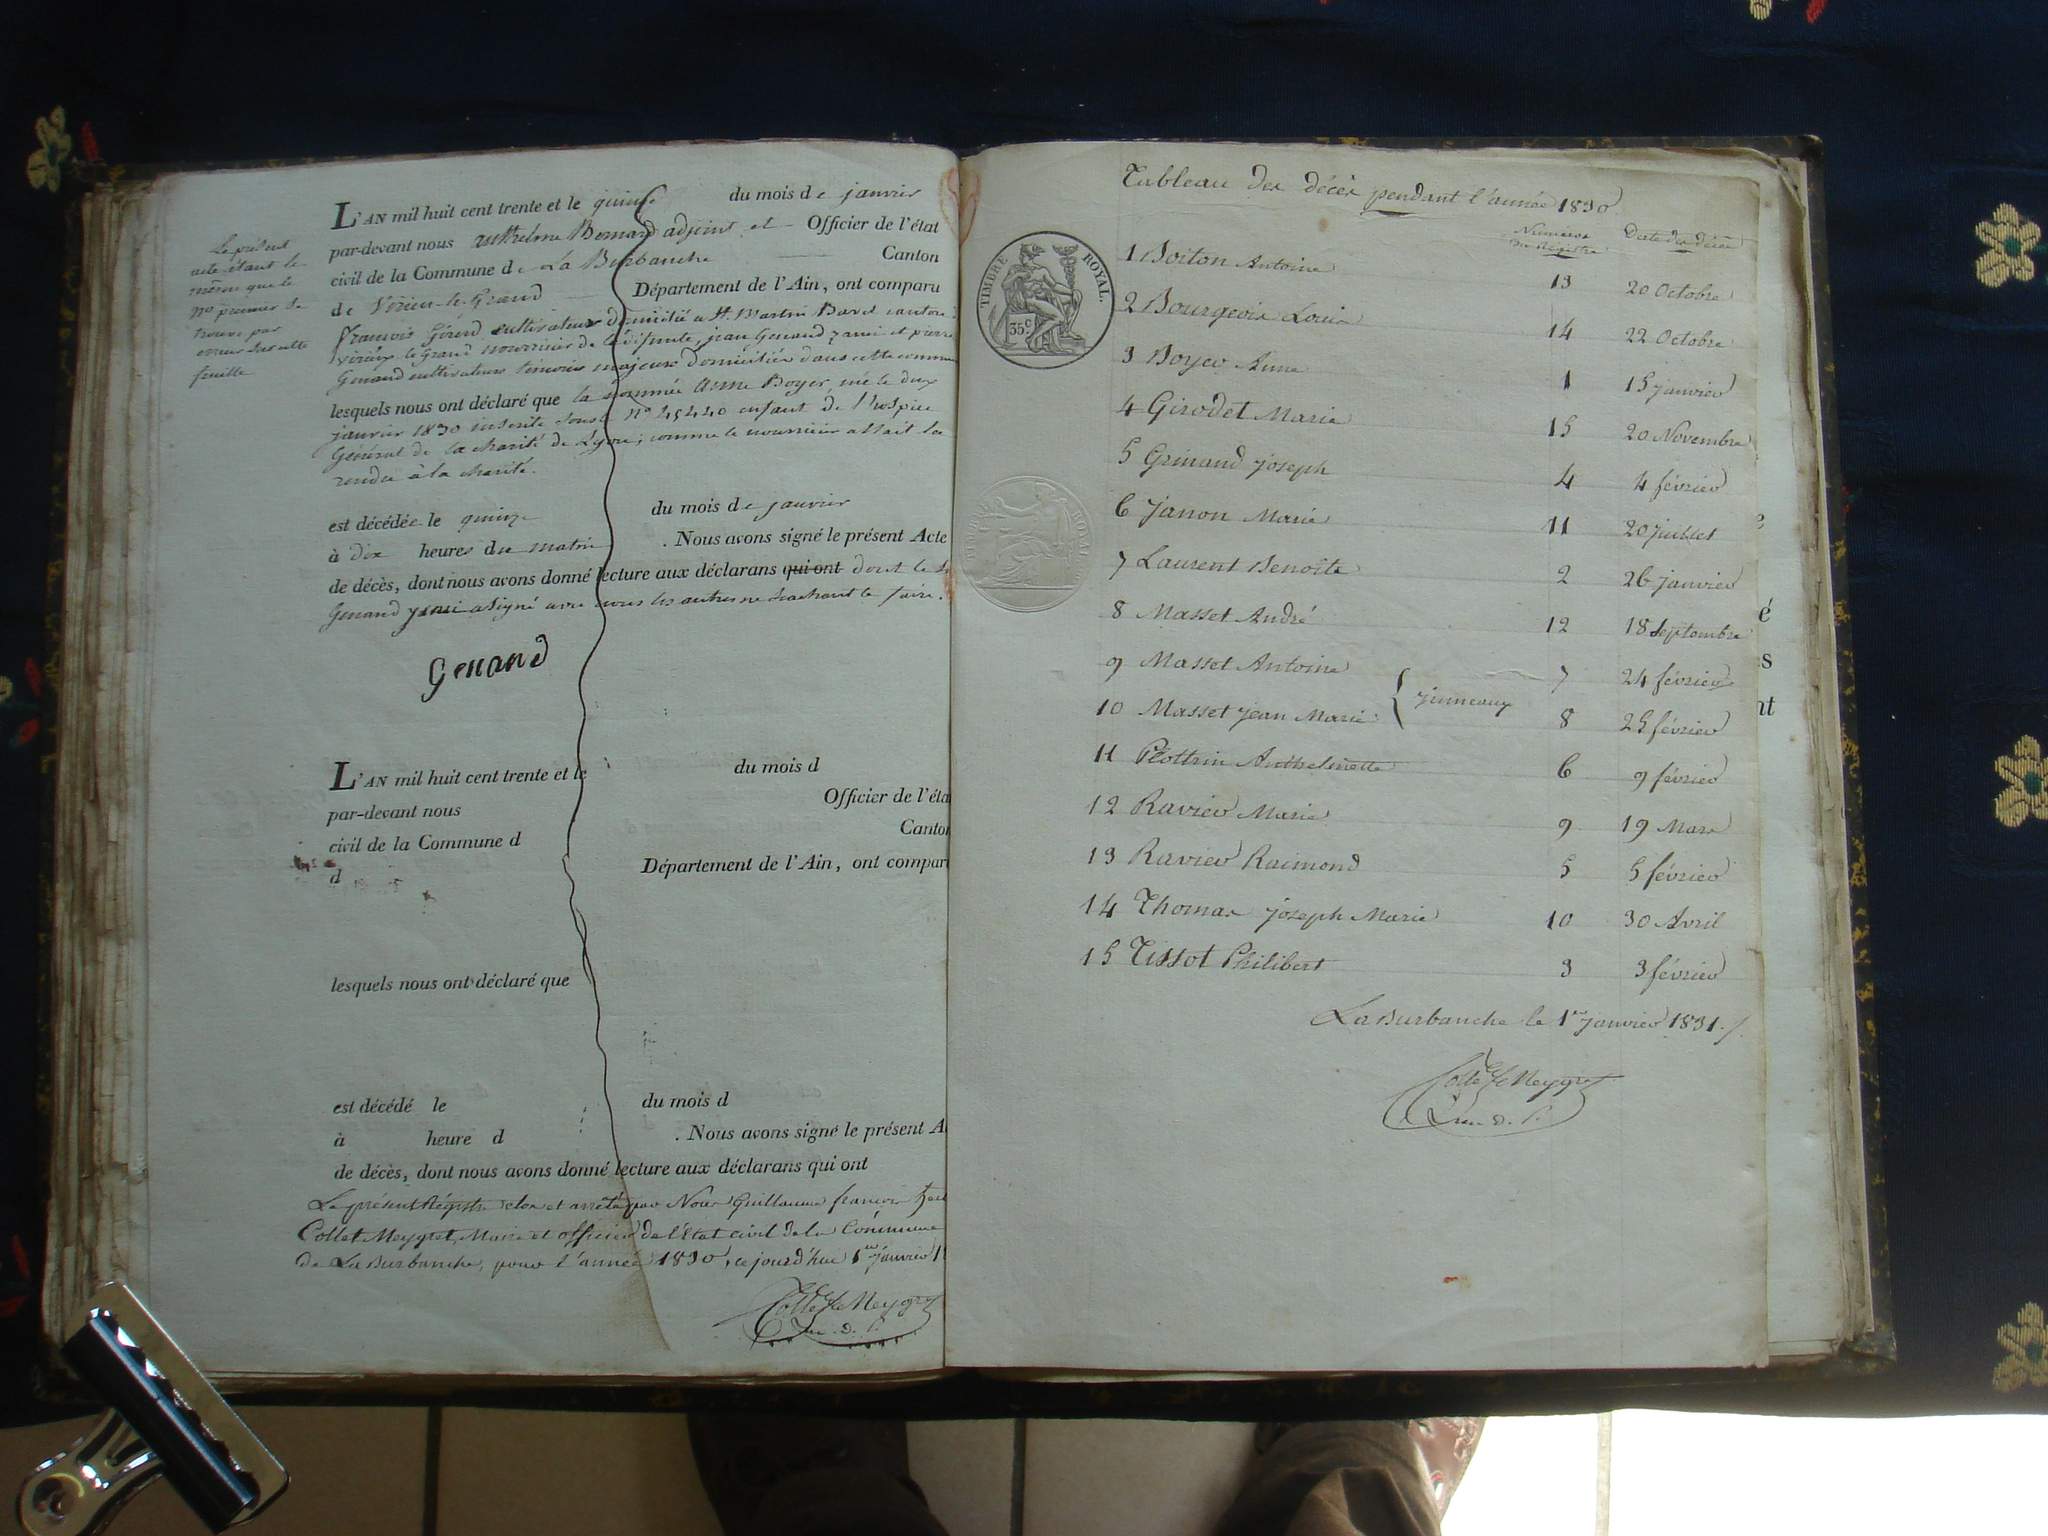 Le présent
acte étant le
même que le
n° premier se
trouve par
erreur sur cette
feuille
L'AN mil huit cent trente et le quinze du mois de janvier
par-devant nous Anthelme Bernard adjoint et Officier de l'état
civil de la Commune de La Burbanche Canton
de Virieu-le-Grand Département de l'Ain, ont comparu
François Gérod cultivateur domicilié a St. Martin Bavel canton
Virieu le Grand nourricier de la défunte, jean Genand yami et pierre
Genand cultivateurs témoins majeurs domiciliés dans cette commune
lesquels nous ont déclaré que la nommée Anne Boyer, née le deux
janvier 1830 inscrite sous le n° 45440 enfant de l'hospice
Général de la charité de Lyon; comme le nourricier allait la
rendre à la charité.
est décédée le quinze du mois de janvier
à dix heures du matin . Nous avons signé le présent Acte
de décès, dont nous avons donné lecture aux déclarans qui ont dont le
Genand yami a signé avec nous les autres ne sachant le faire.
Genand
L'AN mil huit cent trente et le du mois d
par-devant nous Officier de l'éta
civil de la Commune d Canton
d Département de l'Ain, ont comparu
lesquels nous ont déclaré que
est décédé le du mois d
à heure d . Nous avons signé le présent A
de décès, dont nous avons donné lecture aux déclarans qui ont
Le présent Régistre clos et arrêté par Nous Guillaume françois
Collet-Meygret, Maire et officier de l'Etat civil de la Commune
de La Burbanche, pour l'année 1830, ce jourd'hui 1er janvier 1
Collet Meygret
Tableau des décès pendant l'année 1830.
Numéros du Régistre Date des décès
TIMBRE ROYAL.
35c
1 Boiton Antoine 13 20 Octobre
2 Bourgeois Louis 14 22 Octobre
3 Boyer Anne 1 15 janvier
4 Girodet Marie 15 20 Novembre
5 Grinand joseph 4 4 février
6 Janon Marie 11 20 juillet
7 Laurent Benoîte 2 26 janvier
8 Masset André 12 18 septembre
9 Masset Antoine 7 24 février
jumeaux
10 Masset jean Marie 8 25 février
11 Plottrin Anthelmette 6 9 février
12 Ravier Marie 9 19 Mars
13 Ravier Raimond 5 5 février
14 Thomas joseph Marie 10 30 Avril
15 Tissot Philibert 3 3 février
La Burbanche le 1er janvier 1831.
Collet Meygret